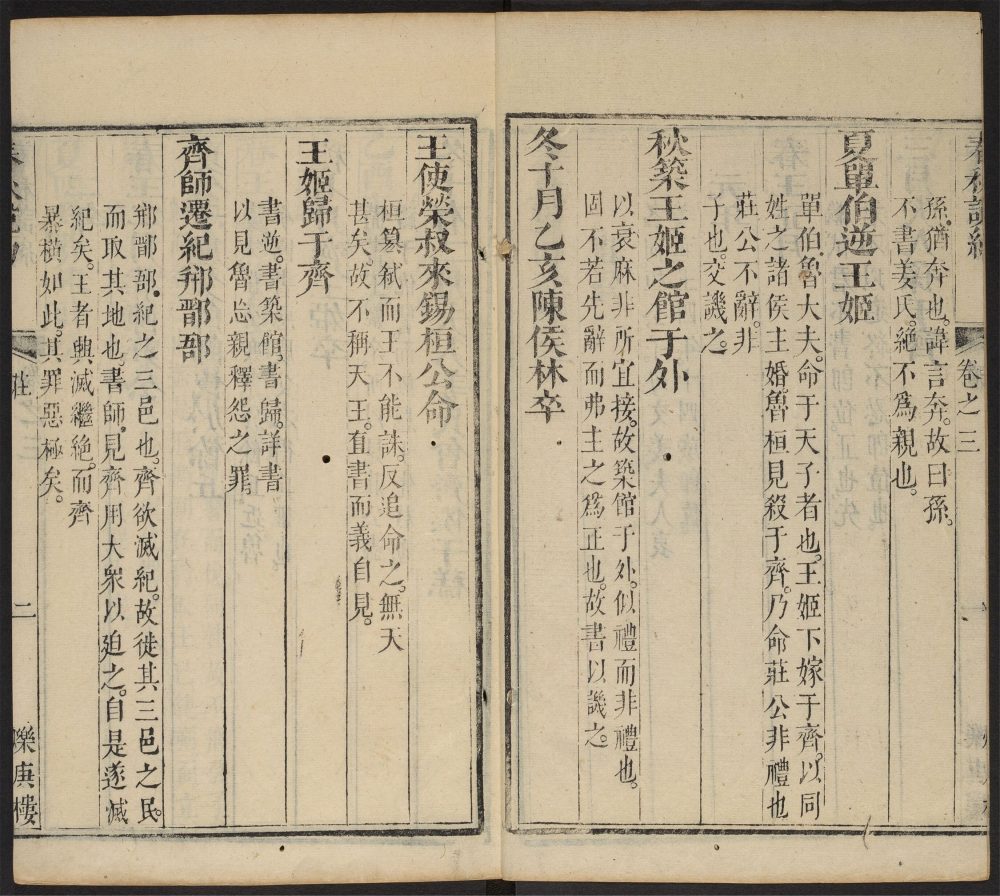 卷之三
孫猶奔也諱言奔故曰孫
不書姜氏絕不爲親也
夏單伯逆王姬
單伯魯大夫命于天子者也王姬下嫁于齊以同
姓之諸侯主婚魯桓見殺于齊乃命莊公非禮也
莊公不辭非
子也交譏之
秋築王姬之館于外
以衰麻非所宜接故築館于外似禮而非禮也
固不若先辭而弗主之爲正也故書以譏之
冬十月乙亥陳侯林卒
王使榮叔來錫桓公命
桓篡弑而王不能誅反追命之無天
甚矣故不稱天王直書而義自見
王姬歸于齊
書逆書築館書歸詳書
以見魯忘親釋怨之罪
齊師遷紀郱鄑郚
郱鄑郚紀之三邑也齊欲滅紀故徙其三邑之民
而取其地也書師見齊用大衆以廹之自是遂滅
紀矣王者興滅繼絕而齊
暴橫如此其罪惡極矣
莊
二
樂庚樓